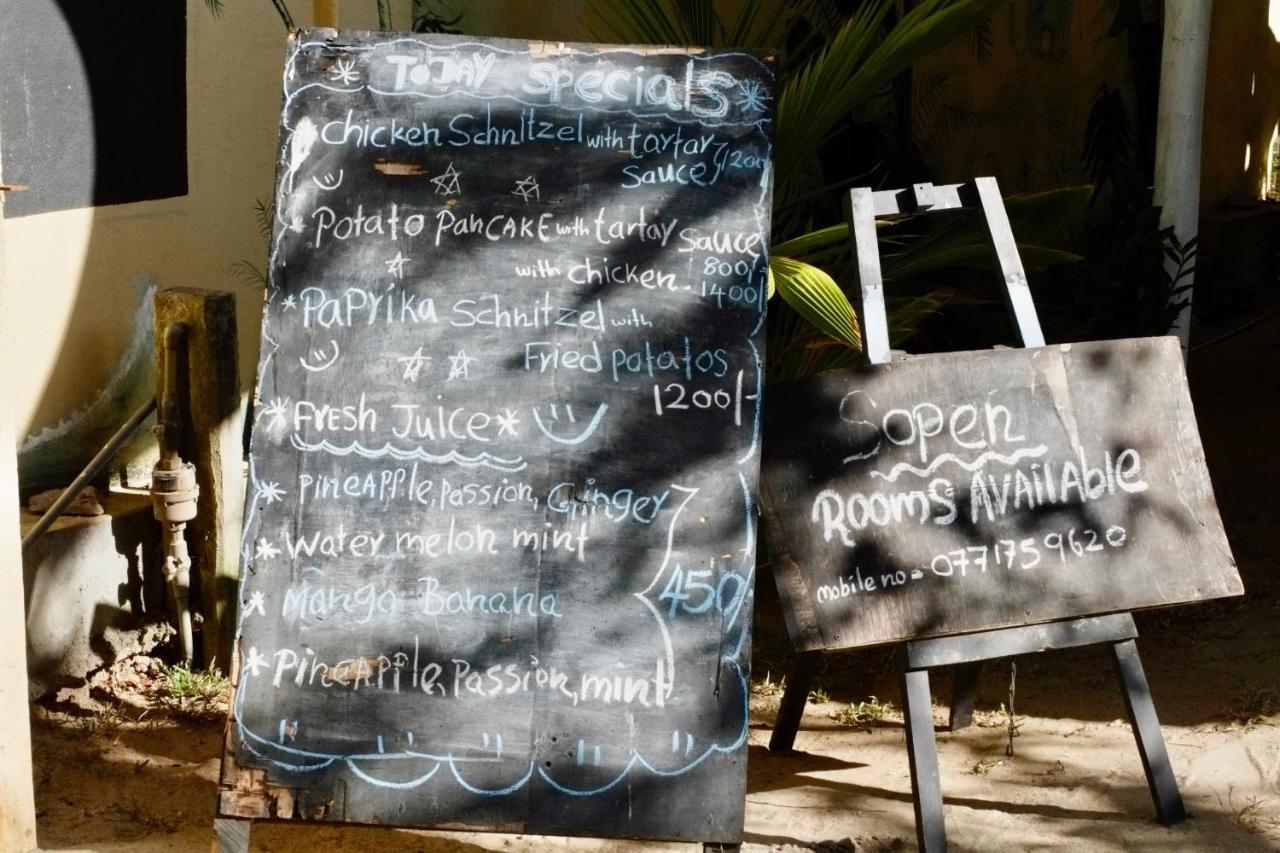 TODAY specials
chicken Schnitzel with tartar
sauce 1200
Potato PANCAKE with tartay sauce
800/-
with chicken - 1400/
PaPrika Schnitzel with
Fried potatos
1200/-
FRESH Juice
PineAPPle, passion, Gingey
Water melon mint
Mango Banana
450/
PineAPPle, Passion, mint
open
ROOMS AVAilABle
mobile no = 0771759620